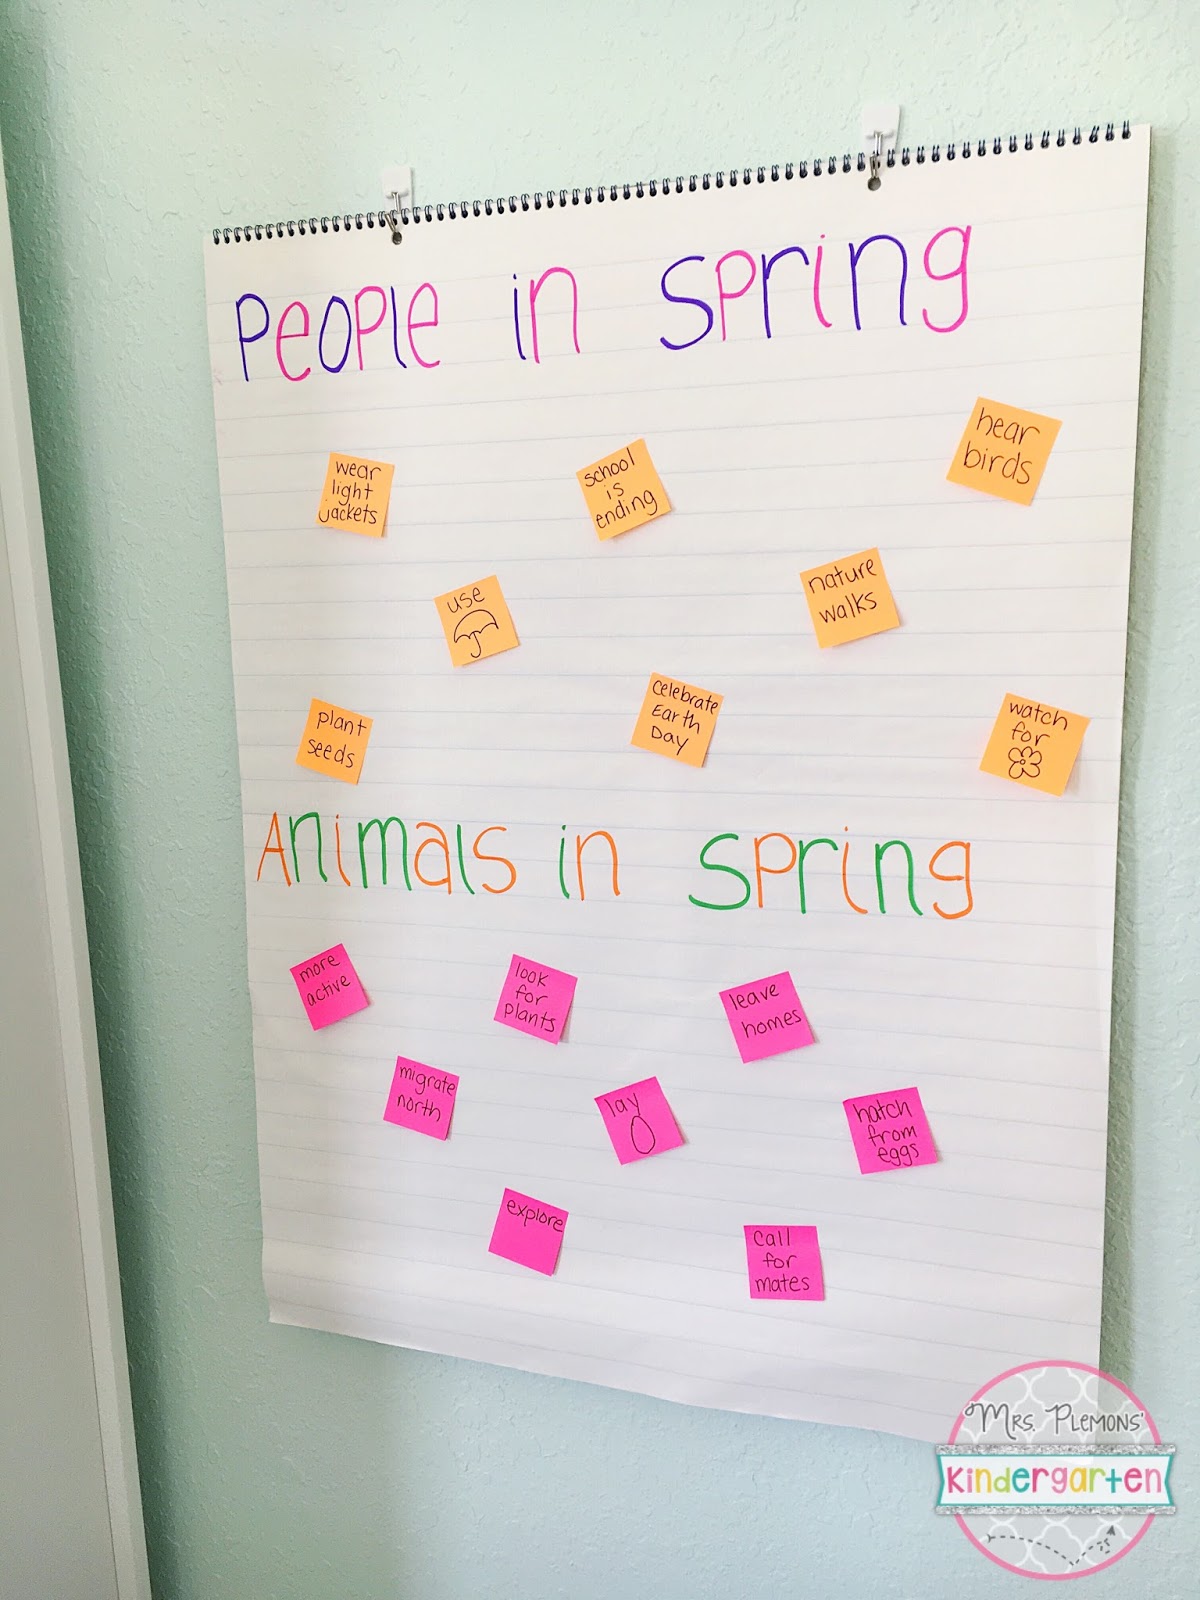 People in Spring
wear
light
jackets
school
is
ending
hear
birds
use
nature
walks
plant
seeds
celebrate
Earth
Day
watch
for
Animals in Spring
more
active
look
for
plants
leave
homes
migrate
north
lay
hatch
from
eggs
explore
call
for
mates
Mrs. Plemons'
Kindergarten